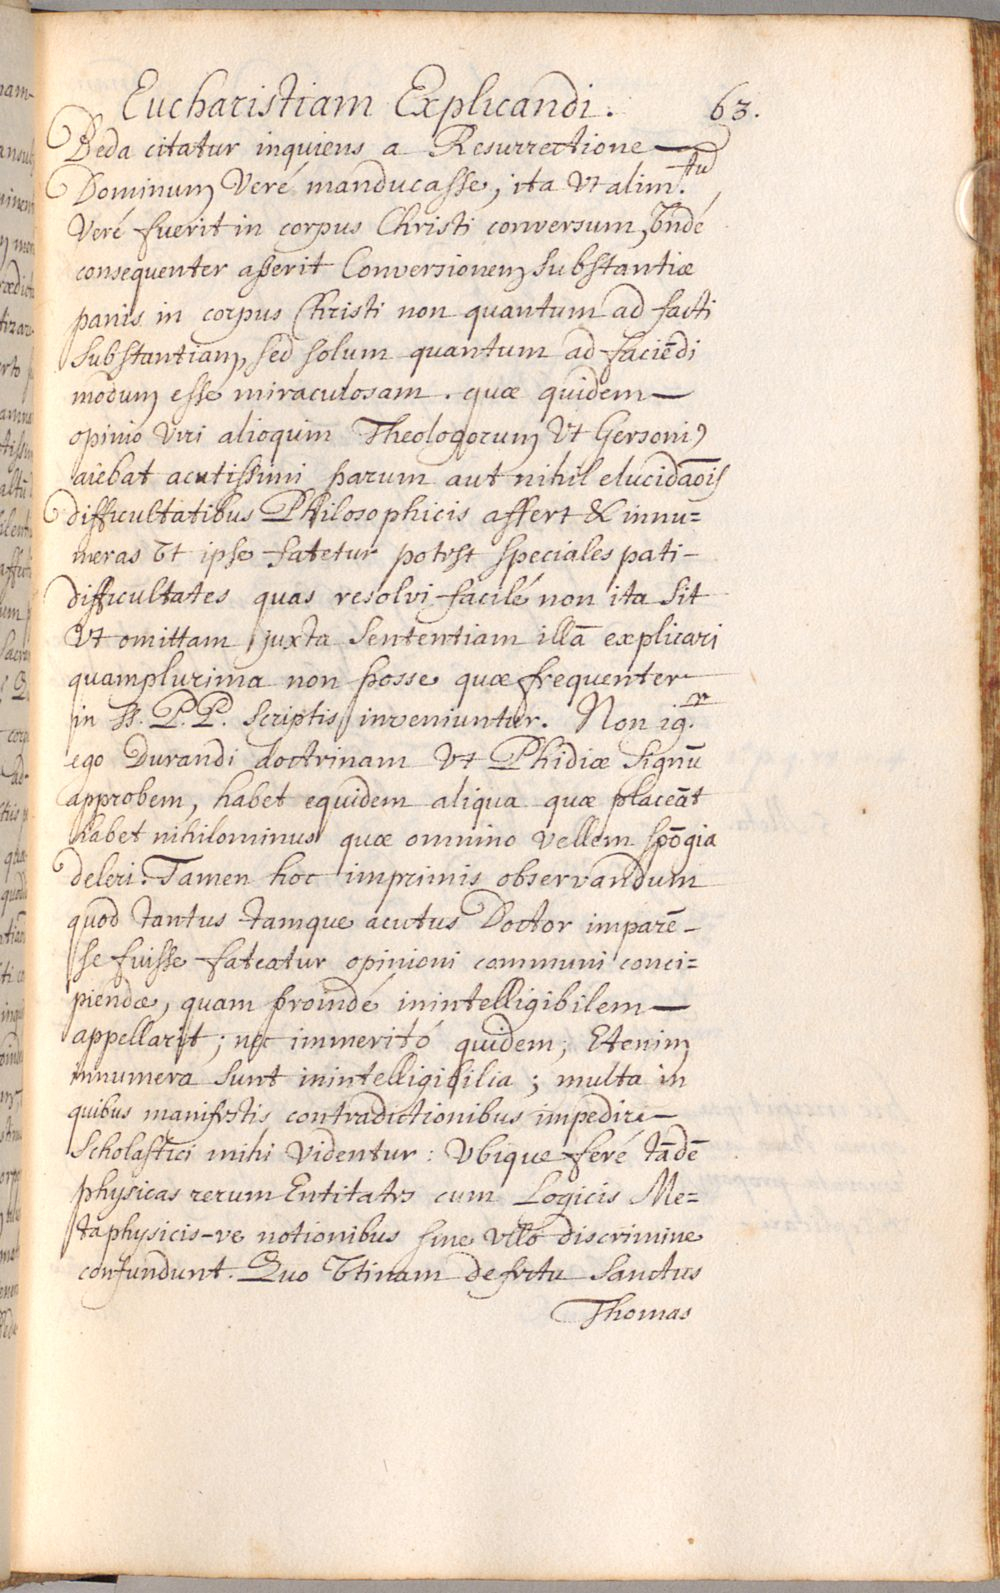 Eucharistiam Explicandi. 63.
Beda citatur inquiens a Resurrectione —
Dominum Veré manducasse, ita Vt alim.tu,
Veré fuerit in corpus Christi conversum, Vndé
consequenter asserit Conversionem Substantiæ
panis in corpus Christi non quantum ad facti
Substantiam, sed solum quantum ad faciēdi
modum esse miraculosam. quæ quidem —
opinio Viri alioquim Theologorum Vt Gersoni9
aiebat acutissimi parum aut nihil elucidaōis
difficultatibus Philosophicis affert & innu=
meras Vt ipse fatetur potest speciales pati-
difficultates quas resolvi facilé non ita sit
Vt omittam juxta Sententiam illā explicari
quamplurima non posse quæ frequenter
in SS. P.P. Scriptis inveniuntur. Non ig.r
ego Durandi doctrinam Vt Phidiæ Signū
approbem, habet equidem aliqua quæ placeāt
habet nihilominus quæ omnino Vellem spōgia
deleri. Tamen hoc imprimis observandum
quod tantus tamque acutus Doctor imparē-
se fuisse fateatur opinioni communi conci=
piendæ, quam proindé inintelligibilem —
appellarit; nec immeritó quidem; Etenim
innumera sunt inintelligibilia; multa in
quibus manifestis contradictionibus impediri —
Scholastici mihi Videntur: Vbique feré tādē
physicas rerum Entitates cum Logicis Me=
taphysicis-ve notionibus sine Vlló discrimine
confundunt. Quo Vtinam defectu Sanctus
Thomas